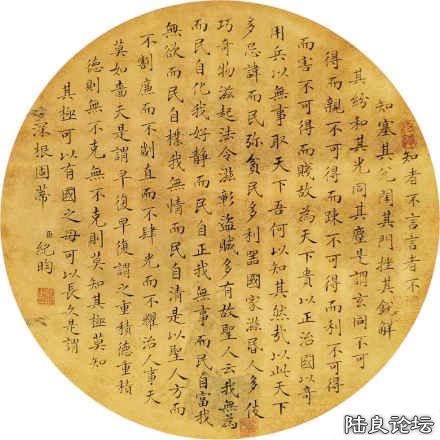 知者不言言者不
知塞其兌閉其門挫其銳解
其紛和其光同其塵是謂玄同不可
得而親不可得而疎不可得而利不可得
而害不可得而賤故為天下貴以正治國以奇
用兵以無事取天下吾何以知其然哉以此天下
多忌諱而民弥貧民多利器國家滋昬人多伎
巧奇物滋起法令滋彰盜賊多有故聖人云我無為
而民自化我好靜而民自正我無事而民自富我
無欲而民自樸我無情而民自清是以聖人方而
不割廉而不劌直而不肆光而不耀治人事天
莫如嗇夫是謂早復早復謂之重積德重積
德則無不克無不克則莫知其極莫知
其極可以有國之母可以長久是謂
深根固蒂 臣紀昀
陆良论坛